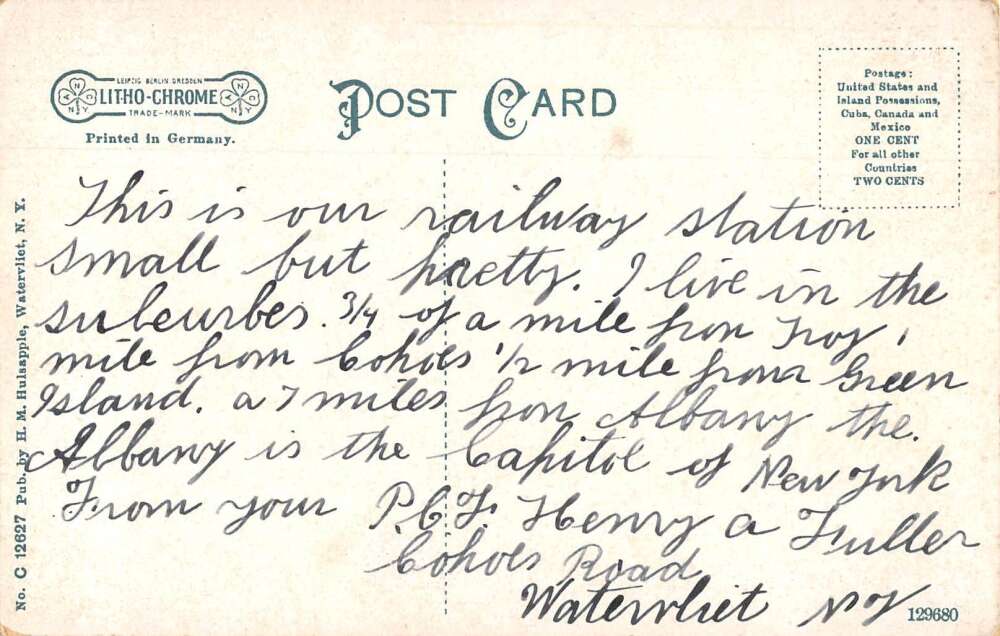 LEIPZIG BERLIN DRESDEN
LITHO-CHROME
TRADE-MARK
N Y C
N Y C
Printed in Germany.
POST CARD
Postage:
United States and
Island Possessions,
Cuba, Canada and
Mexico
ONE CENT
For all other
Countries
TWO CENTS
This is our railway station
small but pretty. I live in the
suleurbes. 3/4 of a mile fron Troy, 1
mile from Cohoes 1/2 mile from Green
Island. a 7 miles fron Albany the.
Albany is the Capitol of New York
From your P.C.F. Henry A Fuller
Cohoes Road
Watervliet NY
No. C 12627 Pub. by H. M. Hulsapple, Watervliet, N. Y.
129680